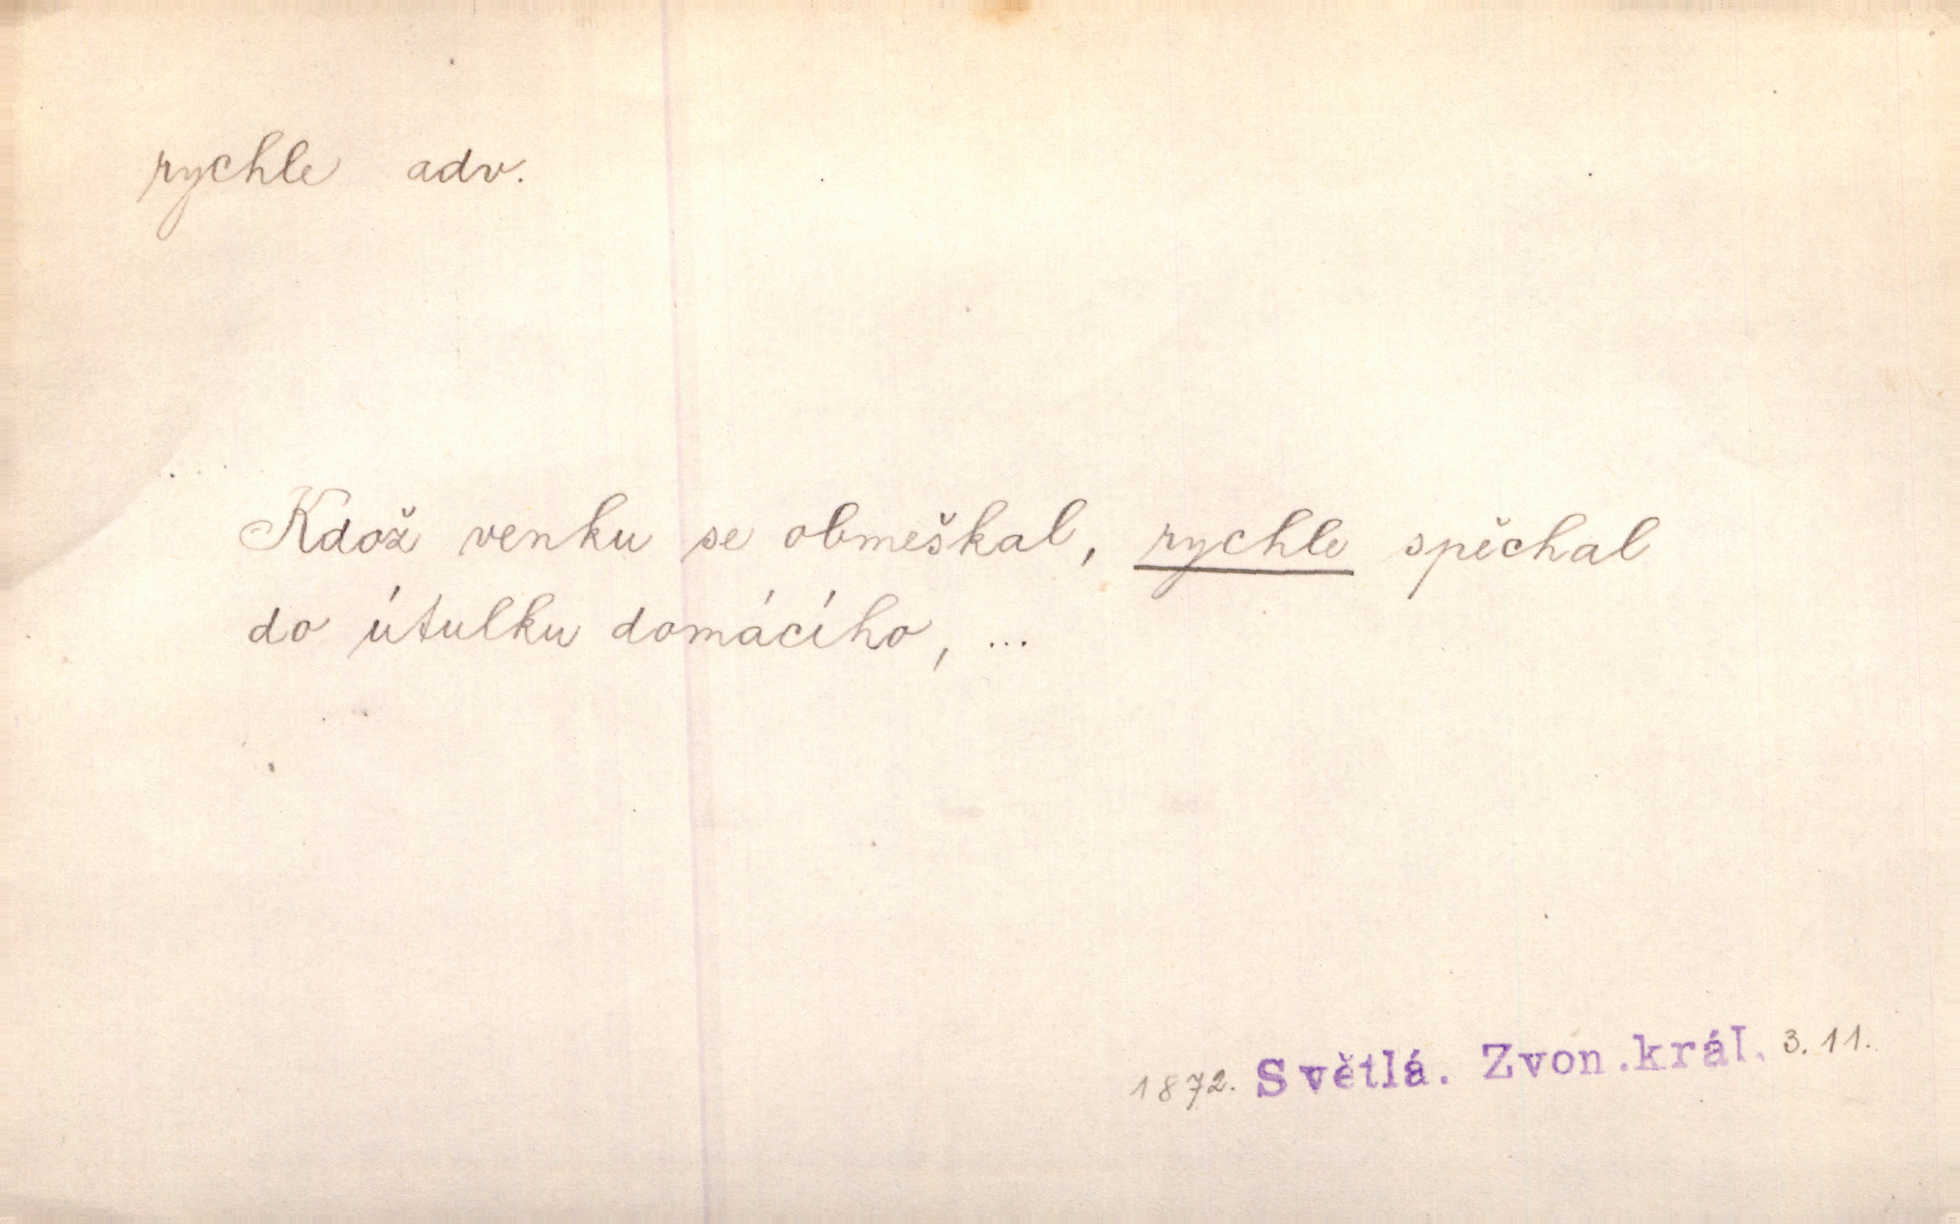 rychle adv.
Kdož venku se obmeškal, rychle spěchal
do útulku domácího, ...
1872. Světlá. Zvon.král. 3. 11.